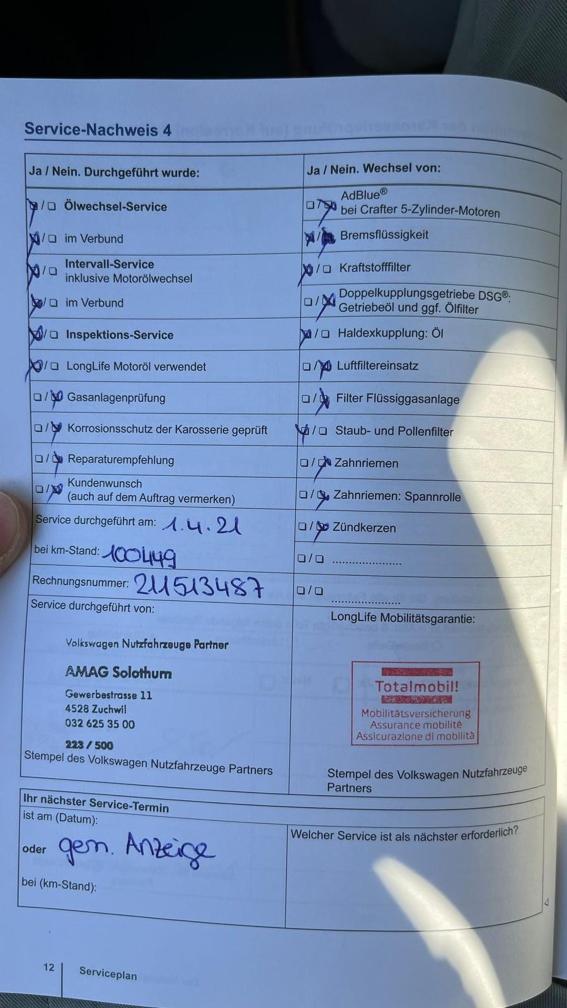 Service-Nachweis 4
Ja / Nein. Durchgeführt wurde:
☒/☐ Ölwechsel-Service
☒/☐ im Verbund
☒/☐ Intervall-Service
inklusive Motorölwechsel
☒/☐ im Verbund
☒/☐ Inspektions-Service
☒/☐ LongLife Motoröl verwendet
☐/☒ Gasanlagenprüfung
☐/☒ Korrosionsschutz der Karosserie geprüft
☐/☒ Reparaturempfehlung
☐/☒ Kundenwunsch
(auch auf dem Auftrag vermerken)
Service durchgeführt am: 1.4.21
bei km-Stand: 100449
Rechnungsnummer: 211513487
Service durchgeführt von:
Volkswagen Nutzfahrzeuge Partner
AMAG Solothurn
Gewerbestrasse 11
4528 Zuchwil
032 625 35 00
223 / 500
Stempel des Volkswagen Nutzfahrzeuge Partners
Ja / Nein. Wechsel von:
☐/☒ AdBlue®
bei Crafter 5-Zylinder-Motoren
☒/☒ Bremsflüssigkeit
☒/☐ Kraftstofffilter
☐/☒ Doppelkupplungsgetriebe DSG®:
Getriebeöl und ggf. Ölfilter
☒/☐ Haldexkupplung: Öl
☐/☒ Luftfiltereinsatz
☐/☒ Filter Flüssiggasanlage
☒/☐ Staub- und Pollenfilter
☐/☒ Zahnriemen
☐/☒ Zahnriemen: Spannrolle
☐/☒ Zündkerzen
☐/☐ .....................
☐/☐ .....................
LongLife Mobilitätsgarantie:
Totalmobil!
Mobilitätsversicherung
Assurance mobilité
Assicurazione di mobilità
Stempel des Volkswagen Nutzfahrzeuge
Partners
Ihr nächster Service-Termin
ist am (Datum):
oder gem. Anzeige
bei (km-Stand):
Welcher Service ist als nächster erforderlich?
12 Serviceplan